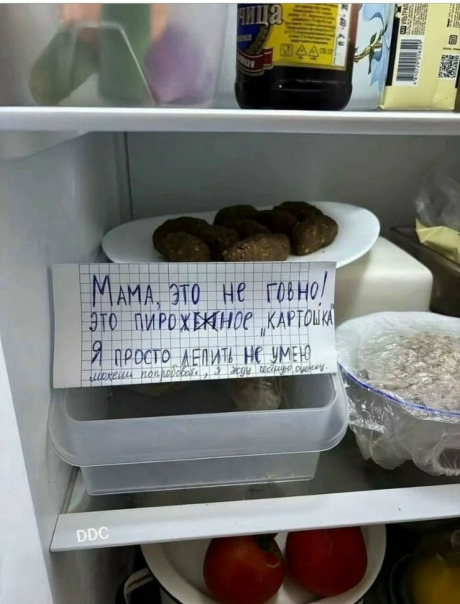 чица
МАМА, ЭТО НЕ ГОВНО!
ЭТО ПИРОЖЕННОЕ „КАРТОШКА"
Я ПРОСТО ЛЕПИТЬ НЕ УМЕЮ
можешь попробовать, я жду честную оценку.
DDC